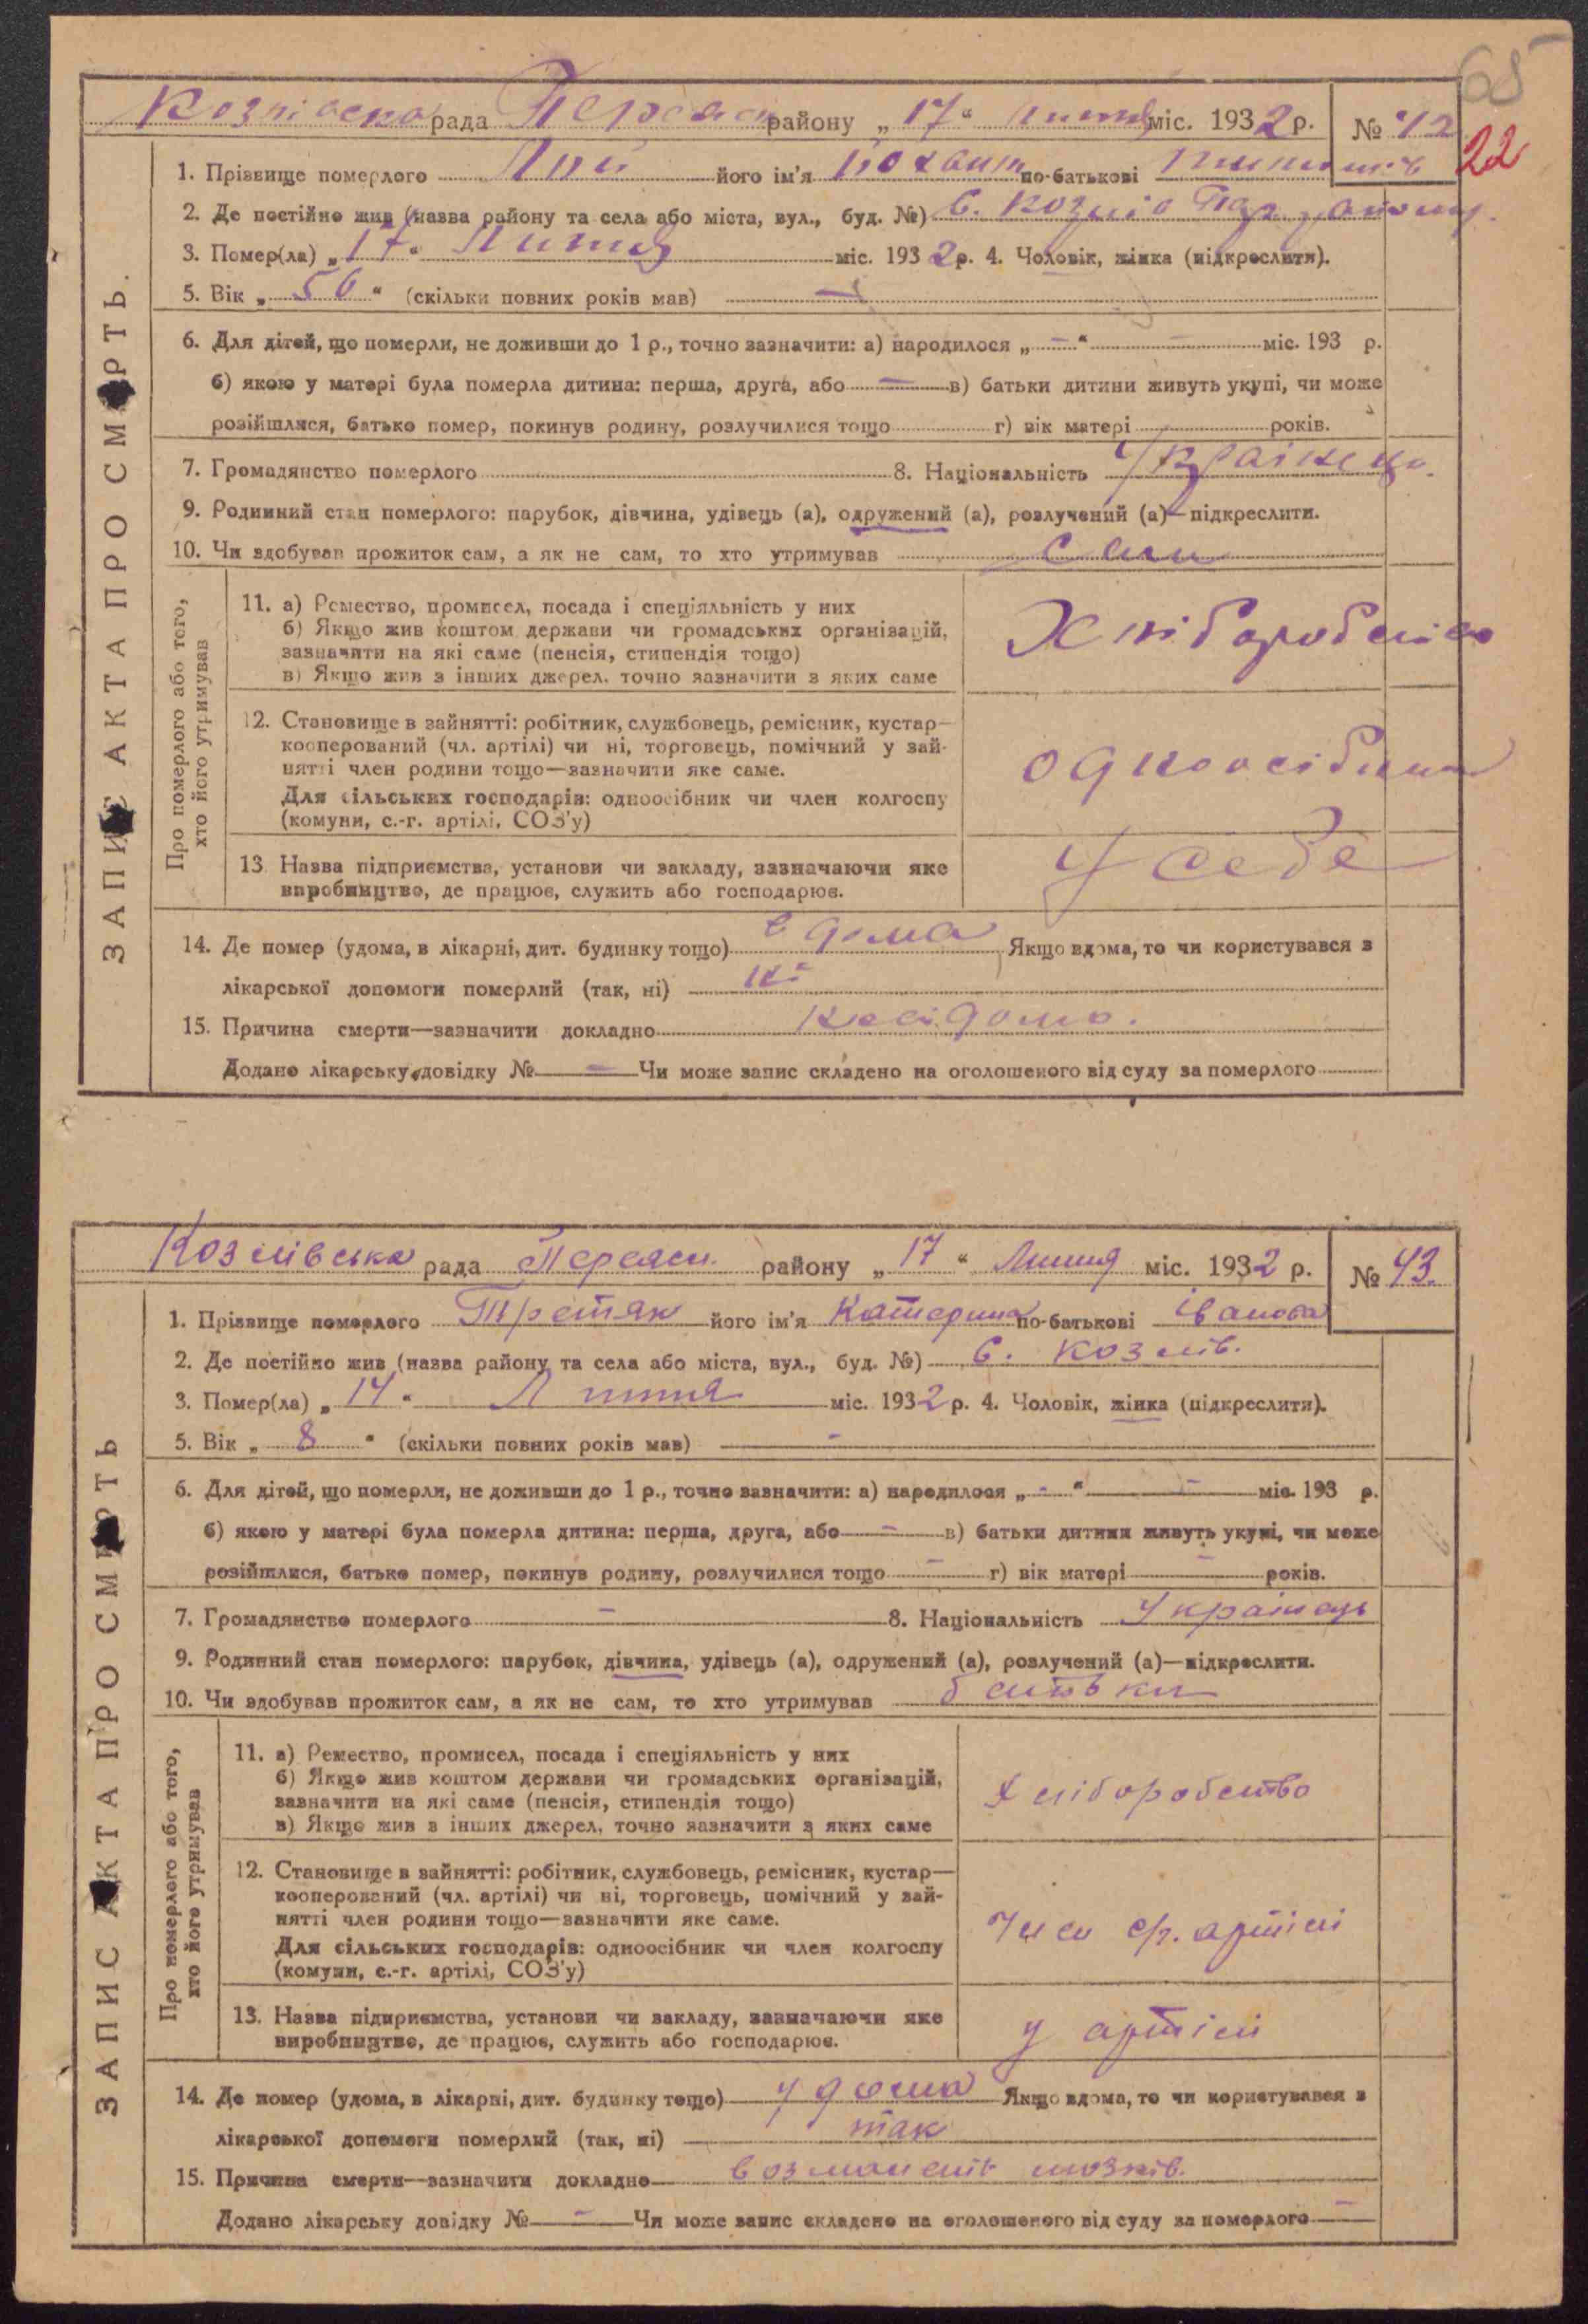 65
22
Козлівська рада Переяс району „17“ липня міс. 1932 р. № 42
1. Прізвище померлого його ім'я по-батькові
2. Де постійно жив (назва району та села або міста, вул., буд. №) С. Козлів
3. Помер(ла) „17“ Липня міс. 1932 р. 4. Чоловік, жінка (підкреслити).
5. Вік „56“ (скільки повних років мав) —
6. Для дітей, що померли, не доживши до 1 р., точно зазначити: а) народилося „–“ – міс. 193 р.
б) якою у матері була померла дитина: перша, друга, або – в) батьки дитини живуть укупі, чи може
розійшлися, батько помер, покинув родину, розлучилися тощо г) вік матері років.
7. Громадянство померлого 8. Національність Українець.
9. Родинний стан померлого: парубок, дівчина, удівець (а), одружений (а), розлучений (а)—підкреслити.
10. Чи здобував прожиток сам, а як не сам, то хто утримував сам
ЗАПИС АКТА ПРО СМЕРТЬ.
Про померлого або того,
хто його утримував
11. а) Ремество, промисел, посада і спеціяльність у них
б) Якщо жив коштом держави чи громадських організацій,
зазначити на які саме (пенсія, стипендія тощо)
в) Якщо жив з інших джерел, точно зазначити з яких саме
Хліборобство
12. Становище в зайнятті: робітник, службовець, ремісник, кустар—
кооперований (чл. артілі) чи ні, торговець, помічний у зай-
нятті член родини тощо—зазначити яке саме.
Для сільських господарів: одноосібник чи член колгоспу
(комуни, с.-г. артілі, СОЗ'у)
одноосібник
13. Назва підприємства, установи чи закладу, зазначаючи яке
виробництво, де працює, служить або господарює.
У себе
14. Де помер (удома, в лікарні, дит. будинку тощо) в дома Якщо вдома, то чи користувався з
лікарської допомоги померлий (так, ні) ні
15. Причина смерти—зазначити докладно невідомо.
Додано лікарську довідку № – Чи може запис складено на оголошеного від суду за померлого
Козлівська рада Переясл. району „17“ Липня міс. 1932 р. № 43.
1. Прізвище померлого Третяк його ім'я Катерина по-батькові Іванова
2. Де постійно жив (назва району та села або міста, вул., буд. №) С. Козлів.
3. Помер(ла) „14“ Липня міс. 1932 р. 4. Чоловік, жінка (підкреслити).
5. Вік „8“ (скільки повних років мав) –
6. Для дітей, що померли, не доживши до 1 р., точно зазначити: а) народилося „-“ – міс. 193 р.
б) якою у матері була померла дитина: перша, друга, або – в) батьки дитини живуть укупі, чи може
розійшлися, батько помер, покинув родину, розлучилися тощо – г) вік матері – років.
7. Громадянство померлого – 8. Національність Українець
9. Родинний стан померлого: парубок, дівчина, удівець (а), одружений (а), розлучений (а)—підкреслити.
10. Чи здобував прожиток сам, а як не сам, то хто утримував батьки
ЗАПИС АКТА ПРО СМЕРТЬ
Про померлого або того,
хто його утримував
11. а) Ремество, промисел, посада і спеціяльність у них
б) Якщо жив коштом держави чи громадських організацій,
зазначити на які саме (пенсія, стипендія тощо)
в) Якщо жив з інших джерел, точно зазначити з яких саме
Хліборобство
12. Становище в зайнятті: робітник, службовець, ремісник, кустар—
кооперований (чл. артілі) чи ні, торговець, помічний у зай-
нятті член родини тощо—зазначити яке саме.
Для сільських господарів: одноосібник чи член колгоспу
(комуни, с.-г. артілі, СОЗ'у)
артілі
13. Назва підприємства, установи чи закладу, зазначаючи яке
виробництво, де працює, служить або господарює.
у артілі
14. Де помер (удома, в лікарні, дит. будинку тощо) у дома Якщо вдома, то чи користувався з
лікарської допомоги померлий (так, ні) так
15. Причина смерти—зазначити докладно мозків.
Додано лікарську довідку № – Чи може запис складено на оголошеного від суду за померлого –